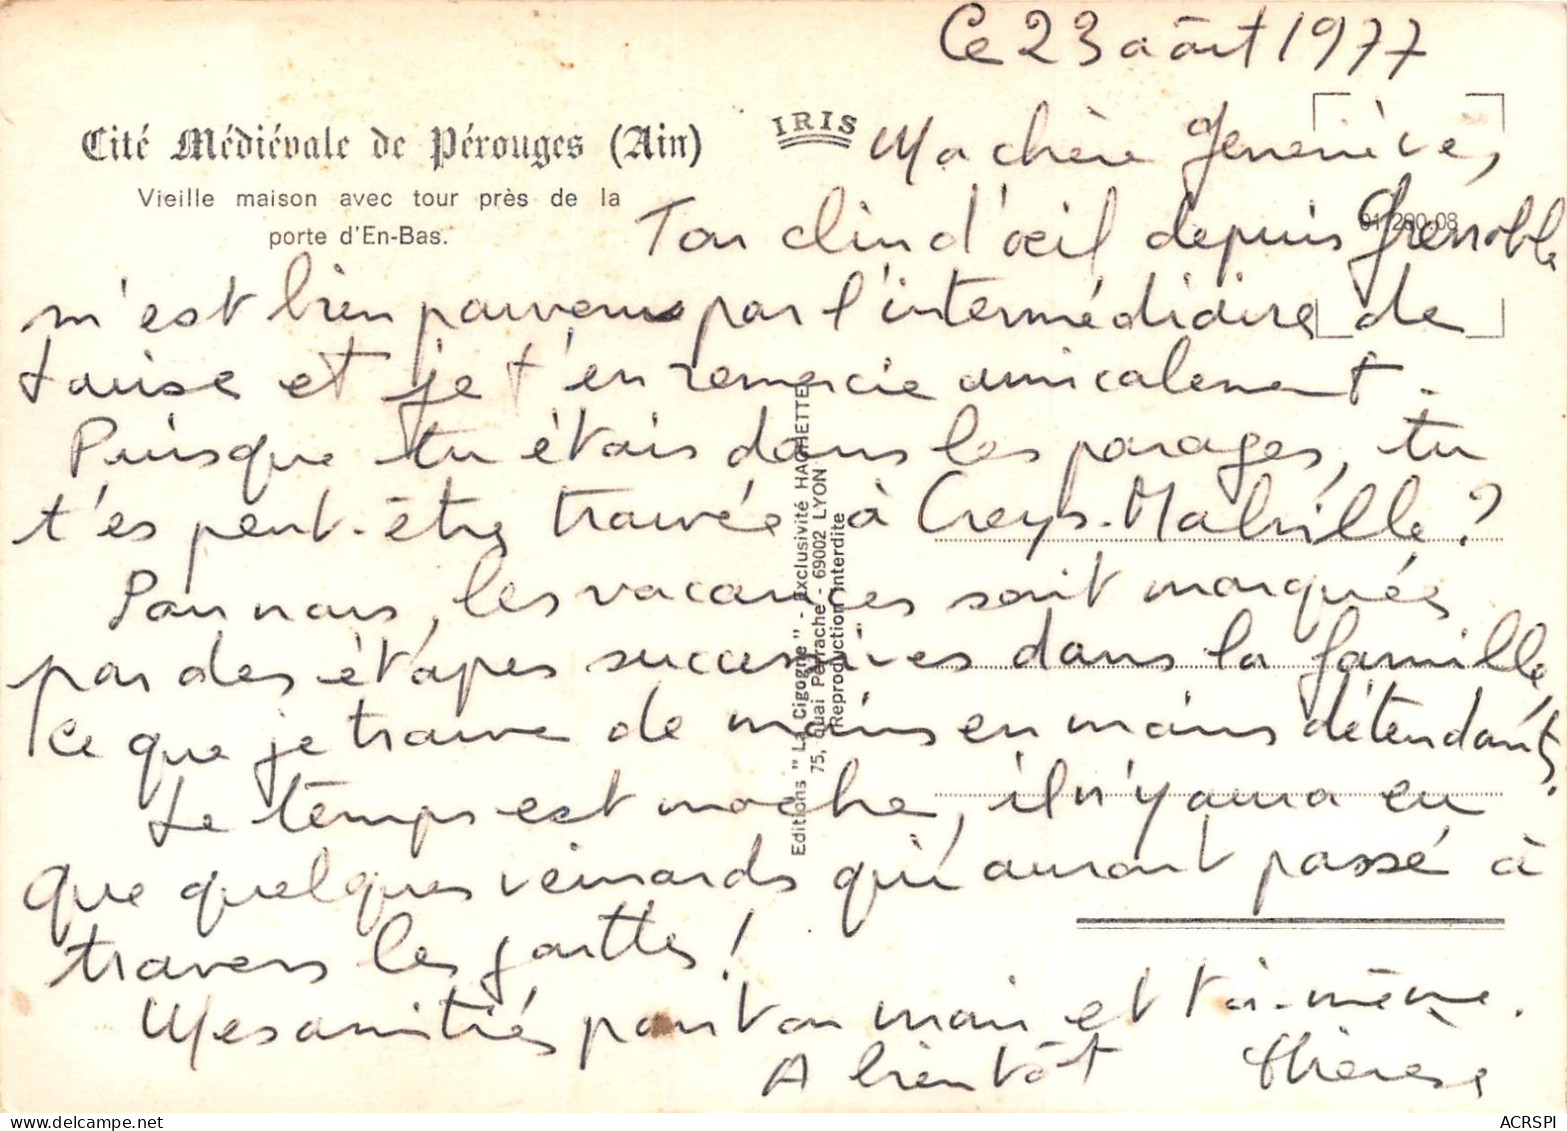 Ce 23 août 1977
Cité Médiévale de Pérouges (Ain)
Vieille maison avec tour près de la
porte d'En-Bas.
IRIS
01 280-08
Ma chère Geneviève,
Ton clin d'œil depuis Grenoble
m'est bien parvenu par l'intermédidire de
Louise et je t'en remercie amicalement.
Puisque tu étais dans les parages, tu
t'es peut-être trouvée à Creys-Malville ?
Pour nous, les vacances sont marquées
par des étapes successives dans la famille,
ce que je trouve de moins en moins détendant.
Le temps est moche, il n'y aura eu
que quelques veinards qui auront passé à
travers les gouttes !
Mes amitiés pour ton mari et toi-même.
A bientôt Thérèse
Editions "La Cigogne" - Exclusivité HACHETTE
75, Quai Perrache - 69002 LYON
Reproduction interdite
ACRSPI